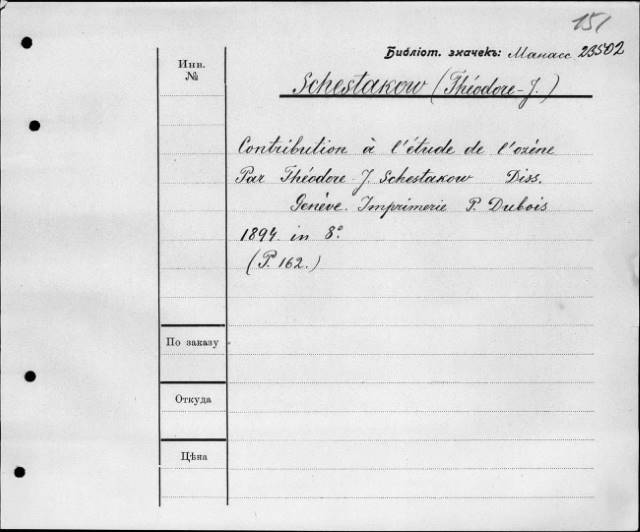 151
Библіот. значекъ: Манасс 23502
Инв.
№
Schestakow (Théodore-J.)
Contribution à l'étude de l'ozène
Par Théodore-J. Schestakow Diss.
Genève. Imprimerie P. Dubois
1894. in 8°.
(P. 162.)
По заказу
Откуда
Цѣна